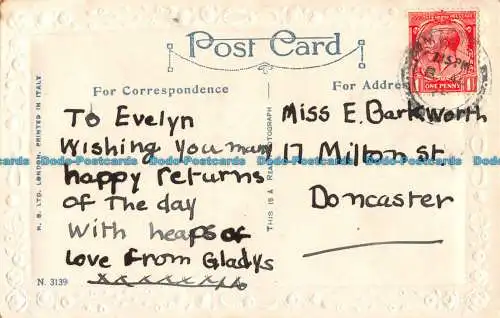 Post Card
For Correspondence
For Address
To Evelyn
Wishing you many
happy returns
of The day
With heaps of
love from Gladys
xxxxxxxx
Miss E. Barkworth
17 Milton St.
Doncaster
N. 3139
H. B. LTD. LONDON. PRINTED IN ITALY
THIS IS A REAL PHOTOGRAPH
ONE PENNY
1 1
Dodo-Postcards Dodo-Postcards Dodo-Postcards Dodo-Postcards